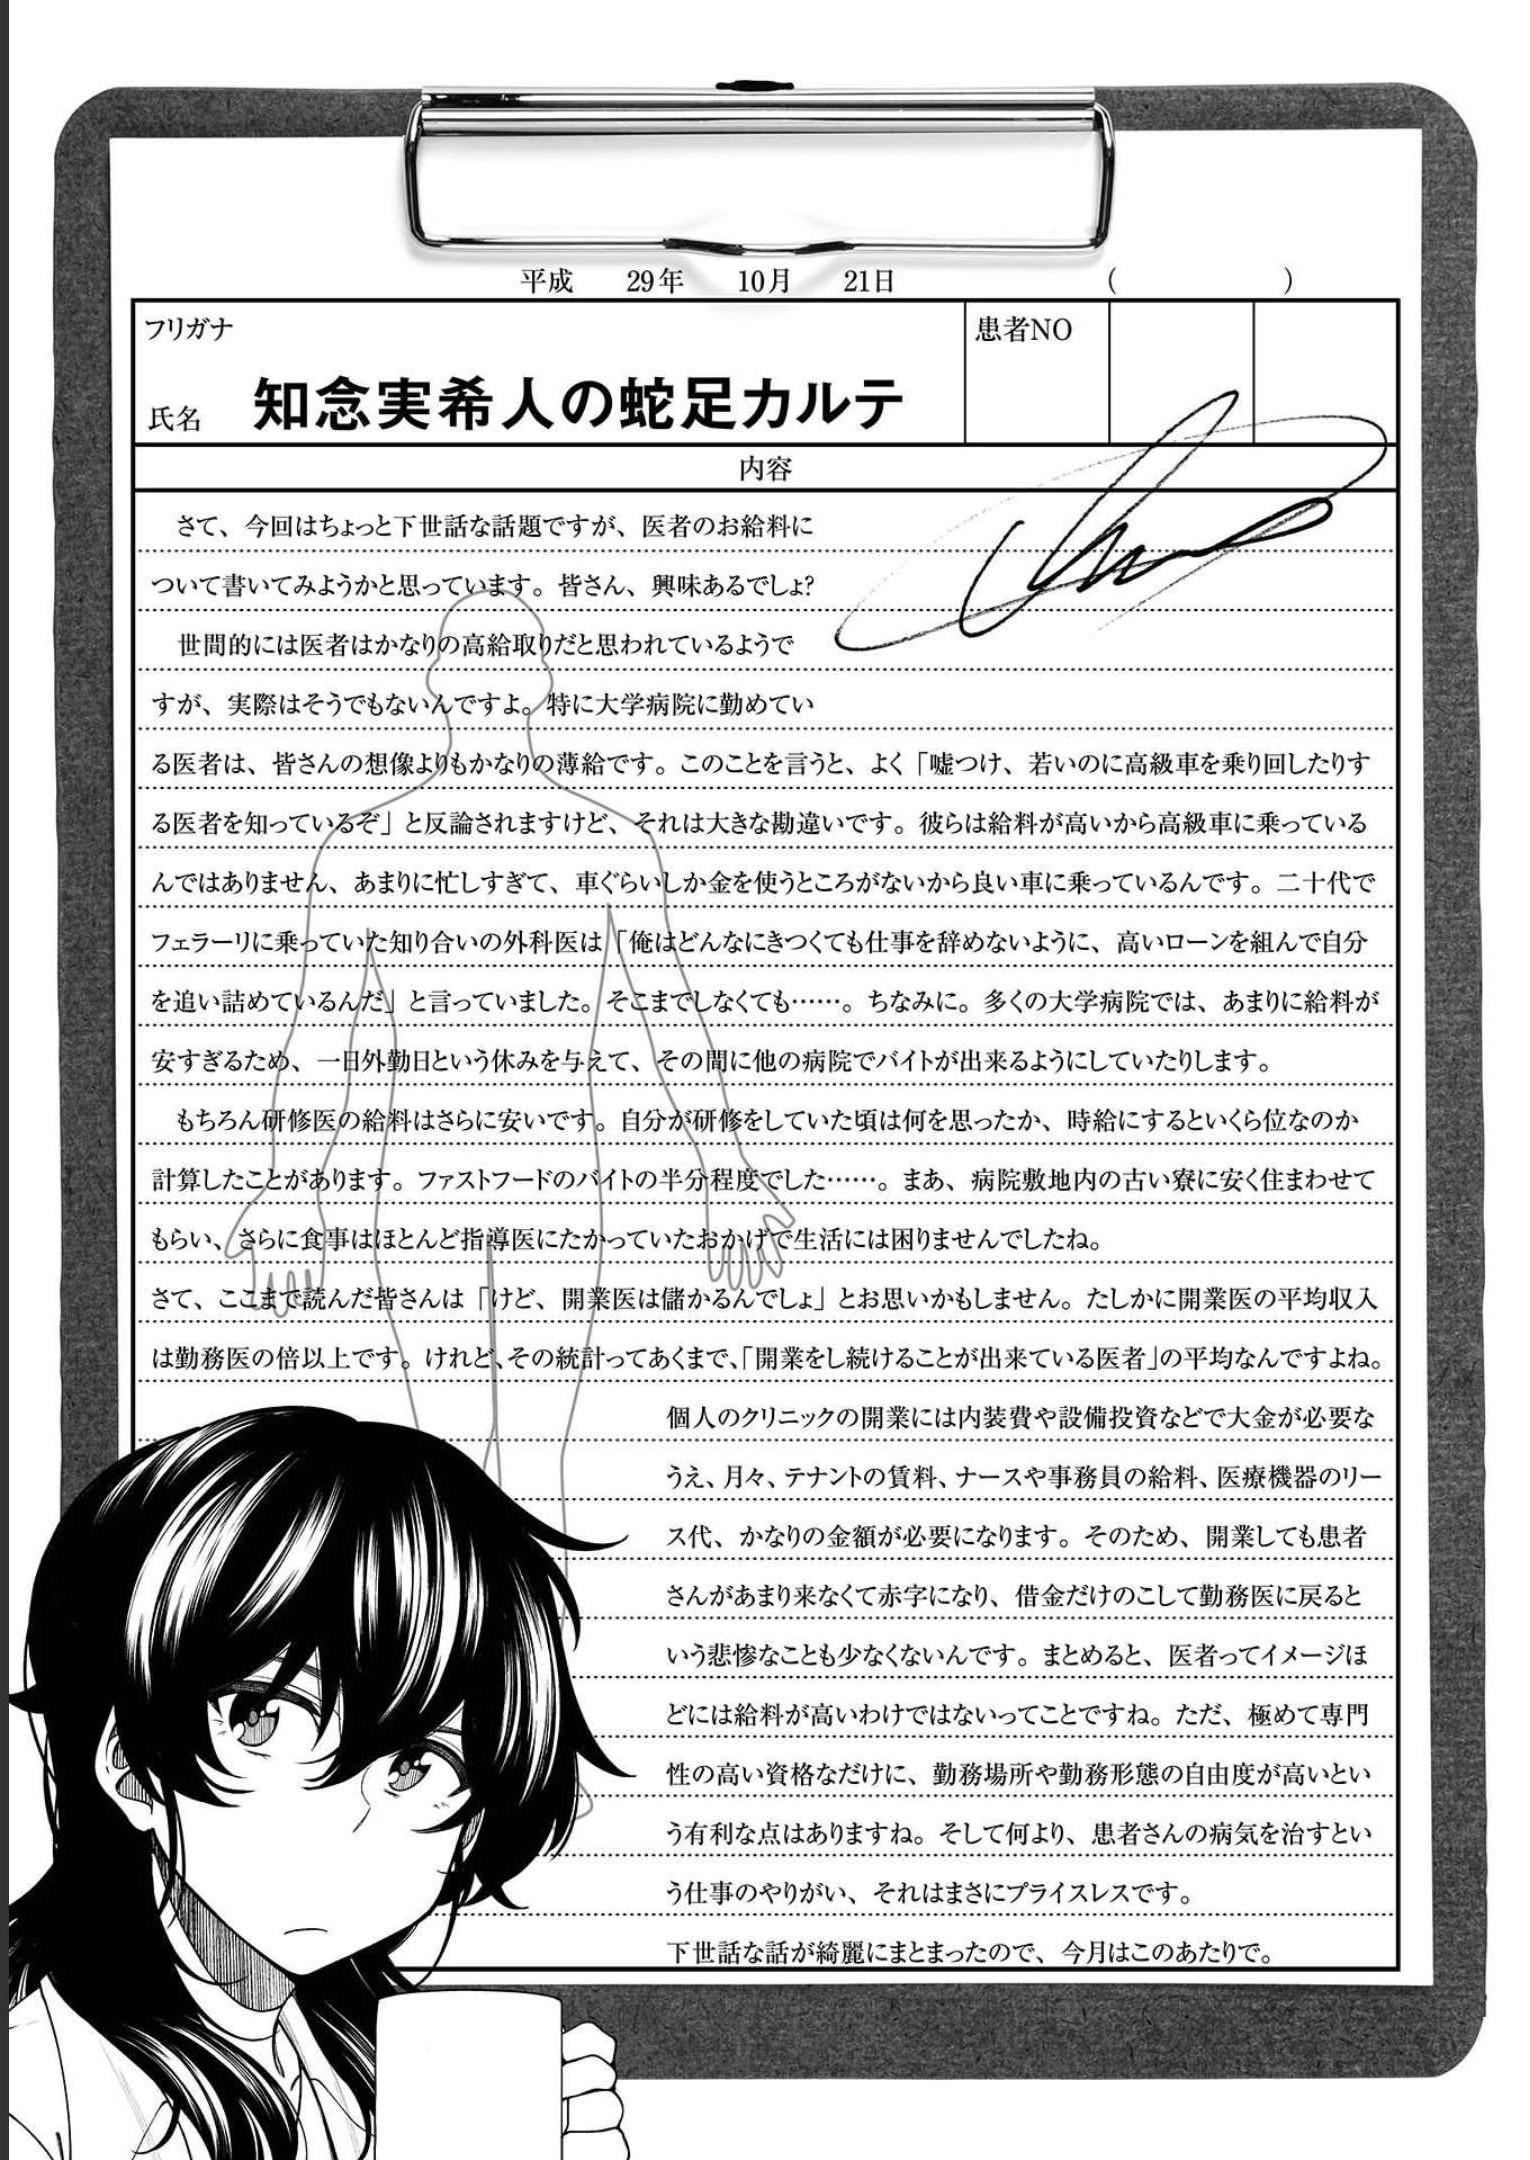 平成 29年 10月 21日 ( )
フリガナ
患者NO
氏名 知念実希人の蛇足カルテ
内容
さて、今回はちょっと下世話な話題ですが、医者のお給料に
ついて書いてみようかと思っています。皆さん、興味あるでしょ?
世間的には医者はかなりの高給取りだと思われているようで
すが、実際はそうでもないんですよ。特に大学病院に勤めてい
る医者は、皆さんの想像よりもかなりの薄給です。このことを言うと、よく「嘘つけ、若いのに高級車を乗り回したりす
る医者を知っているぞ」と反論されますけど、それは大きな勘違いです。彼らは給料が高いから高級車に乗っている
んではありません、あまりに忙しすぎて、車ぐらいしか金を使うところがないから良い車に乗っているんです。二十代で
フェラーリに乗っていた知り合いの外科医は「俺はどんなにきつくても仕事を辞めないように、高いローンを組んで自分
を追い詰めているんだ」と言っていました。そこまでしなくても……。ちなみに。多くの大学病院では、あまりに給料が
安すぎるため、一日外勤日という休みを与えて、その間に他の病院でバイトが出来るようにしていたりします。
もちろん研修医の給料はさらに安いです。自分が研修をしていた頃は何を思ったか、時給にするといくら位なのか
計算したことがあります。ファストフードのバイトの半分程度でした……。まあ、病院敷地内の古い寮に安く住まわせて
もらい、さらに食事はほとんど指導医にたかっていたおかげで生活には困りませんでしたね。
さて、ここまで読んだ皆さんは「けど、開業医は儲かるんでしょ」とお思いかもしません。たしかに開業医の平均収入
は勤務医の倍以上です。けれど、その統計ってあくまで、「開業をし続けることが出来ている医者」の平均なんですよね。
個人のクリニックの開業には内装費や設備投資などで大金が必要な
うえ、月々、テナントの賃料、ナースや事務員の給料、医療機器のリー
ス代、かなりの金額が必要になります。そのため、開業しても患者
さんがあまり来なくて赤字になり、借金だけのこして勤務医に戻ると
いう悲惨なことも少なくないんです。まとめると、医者ってイメージほ
どには給料が高いわけではないってことですね。ただ、極めて専門
性の高い資格なだけに、勤務場所や勤務形態の自由度が高いとい
う有利な点はありますね。そして何より、患者さんの病気を治すとい
う仕事のやりがい、それはまさにプライスレスです。
下世話な話が綺麗にまとまったので、今月はこのあたりで。